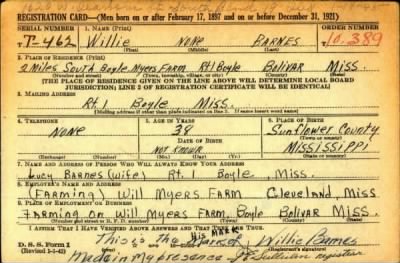 REGISTRATION CARD—(Men born on or after February 17, 1897 and on or before December 31, 1921)
SERIAL NUMBER 1. NAME (Print) ORDER NUMBER
T-462 Willie NONE BARNES 10,389
(First) (Middle) (Last)
2. PLACE OF RESIDENCE (Print)
2 Miles South Boyle Myers Farm Rt1 Boyle Bolivar Miss.
(Number and street) (Town, township, village, or city) (County) (State)
(THE PLACE OF RESIDENCE GIVEN ON THE LINE ABOVE WILL DETERMINE LOCAL BOARD
JURISDICTION; LINE 2 OF REGISTRATION CERTIFICATE WILL BE IDENTICAL)
3. MAILING ADDRESS
Rt. 1 Boyle Miss.
(Mailing address if other than place indicated on line 2. If same insert word same)
4. TELEPHONE 5. AGE IN YEARS 6. PLACE OF BIRTH
NONE 38 Sunflower County
DATE OF BIRTH (Town or county)
NOT KNOWN MISSISSIPPI
(Exchange) (Number) (Mo.) (Day) (Yr.) (State or country)
7. NAME AND ADDRESS OF PERSON WHO WILL ALWAYS KNOW YOUR ADDRESS
Lucy Barnes (wife) Rt. 1 Boyle, Miss.
8. EMPLOYER'S NAME AND ADDRESS
(Farming) Will Myers Farm Cleveland, Miss
9. PLACE OF EMPLOYMENT OR BUSINESS
Farming on Will Myers Farm Boyle Bolivar Miss.
(Number and street or R. F. D. number) (Town) (County) (State)
I AFFIRM THAT I HAVE VERIFIED ABOVE ANSWERS AND THAT THEY ARE TRUE.
D. S. S. Form 1 This is the His Mark of Willie Barnes
(Revised 1-1-42) Made in my presence Sullivan registrar